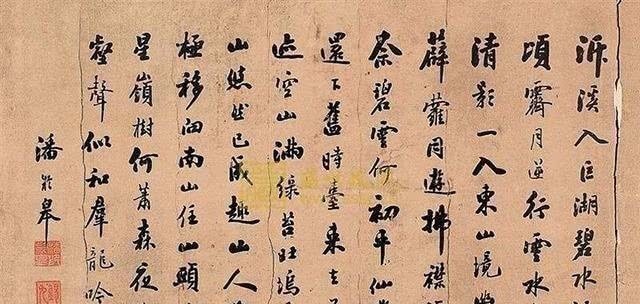 泝溪入巨湖碧水
頃霽月逆行雲水
清影一入東山境
薜蘿同遊拂襟
奈碧雲何初平仙
還下舊時臺來去
迹空山滿綠苔旺塢
山悠然已成趣山人
極移向南山住山頭
星嶺樹何蕭森夜
壑聲似和羣龍吟
潘齡皋